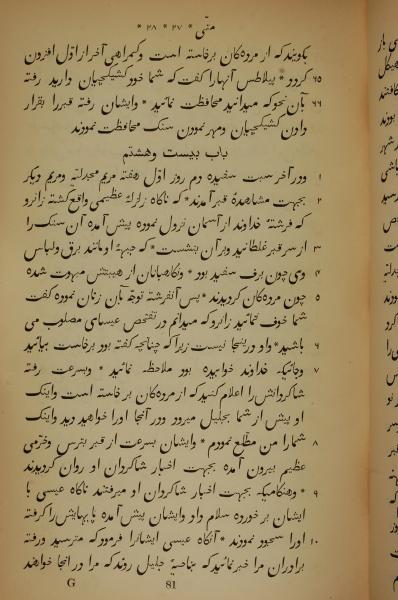 متّی * ۲۷ * ۲۸ *
بگویند که از مرده‌گان برخاسته است و گمراهی آخر از اوّل افزون
۶۵ گردد * پیلاطس آنها را گفت که شما خود کشیکچیان دارید رفته
۶۶ بآن نحو که میدانید محافظت نمائید * و ایشان رفته قبر را بقرار
دادن کشیکچیان و مهر نمودن سنگ محافظت نمودند
باب بیست و هشتم
۱ و در آخر سبت سفیده دم روز اوّل هفته مریم مجدلیّه و مریم دیگر
۲ بجهت مشاهدهٔ قبر آمدند * که ناگاه زلزلهٔ عظیمی واقع گشته زانرو
که فرشتهٔ خداوند از آسمان نزول نموده پیش آمده آن سنگ را
۳ از سر قبر غلطانید و برآن بنشست * که جبههٔ او مانند برق و لباس
۴ وی چون برف سفید بود * و نگاهبانان از هیبتش مبهوت شده
۵ چون مرده‌گان گردیدند * پس آنفرشته توجّه بآن زنان نموده گفت
شما خوف نمائید زانرو که میدانم در تفحّص عیسای مصلوب می
۶ باشید * و او در اینجا نیست زیرا که چنانچه گفته بود برخاست بیائید
۷ و جائیکه خداوند خوابیده بود ملاحظه نمائید * و بسرعت رفته
شاگردانش را اعلام کنید که از مرده‌گان برخاسته است و اینک
او پیش از شما بجلیل میرود و در آنجا اورا خواهید دید و اینک
۸ شما را من مطّلع نمودم * و ایشان بسرعت از قبر بترس و خرّمی
عظیم بیرون آمده بجهت اخبار شاگردان او روان گردیدند
۹ * و هنگامیکه بجهت اخبار شاگردان او میرفتند ناگاه عیسی با
ایشان برخورده سلام داد و ایشان پیش آمده پایهایش را گرفته
۱۰ اورا سجود نمودند * آنگاه عیسی ایشانرا فرمود که مترسید و رفته
برادران مرا خبر نمائید که بناحیهٔ جلیل روند که مرا در آنجا خواهند
G 81